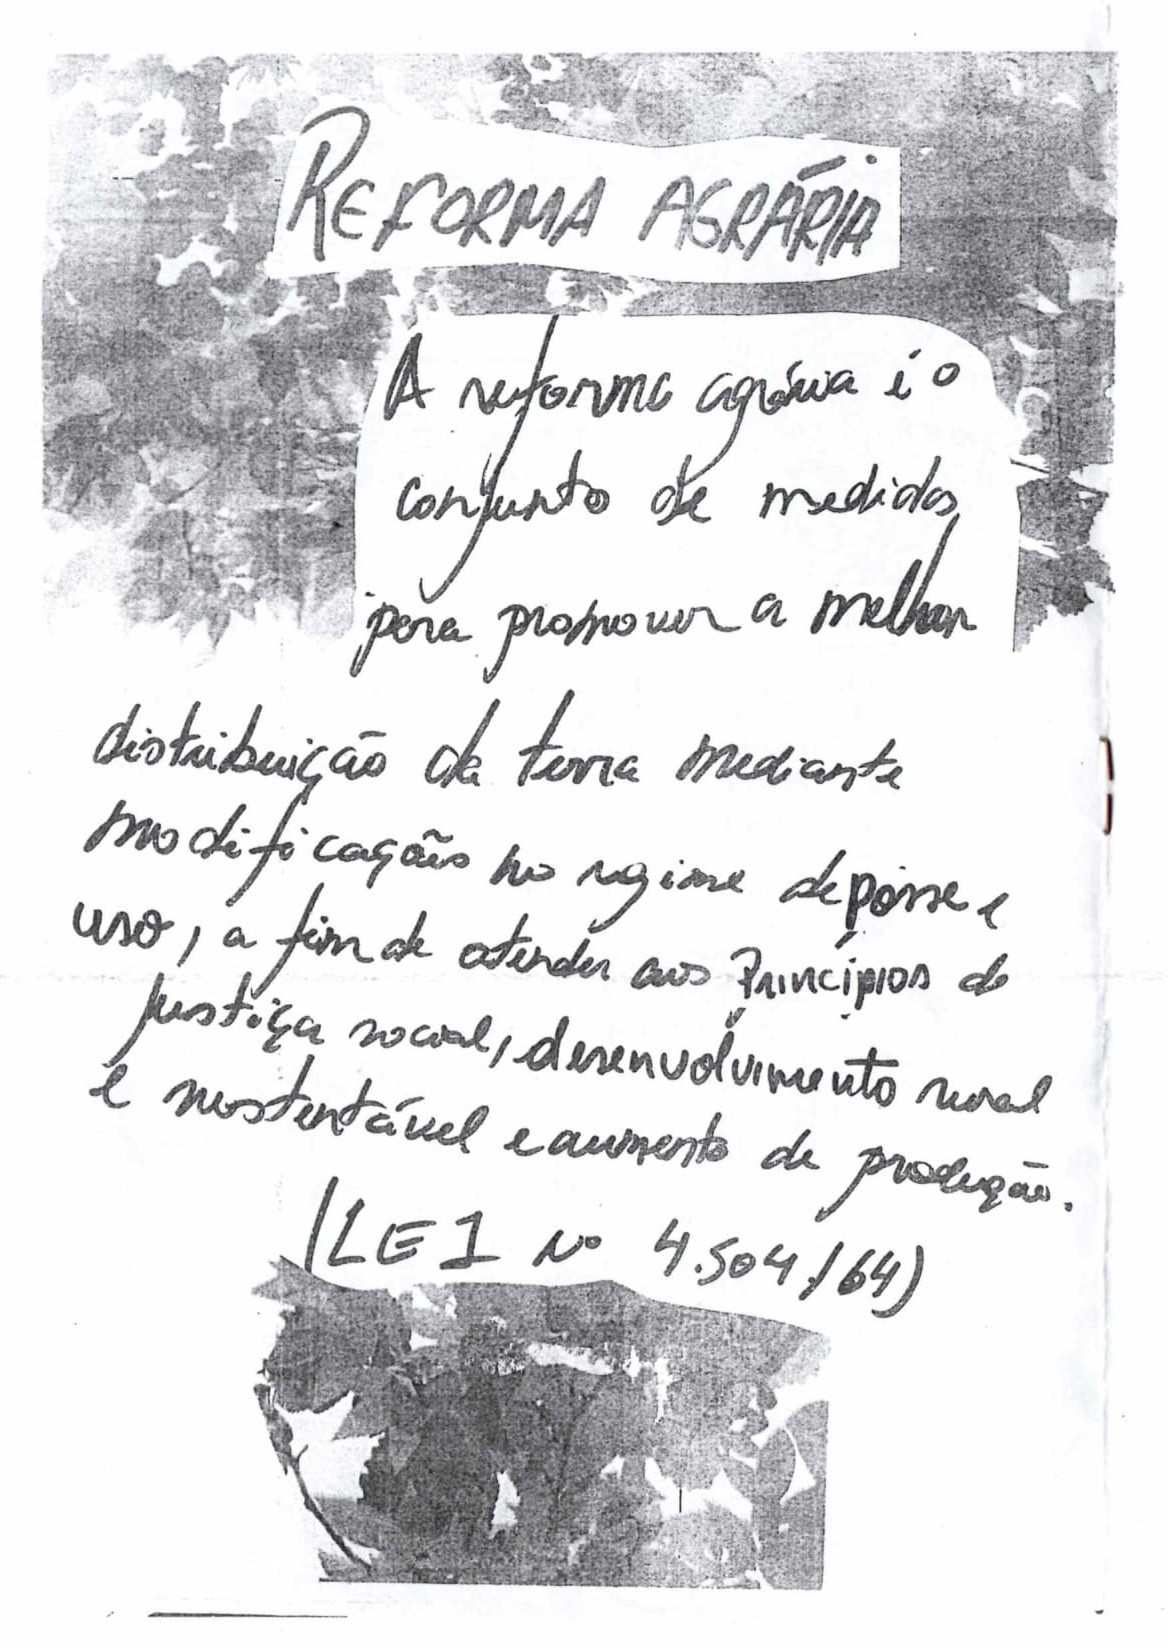 REFORMA AGRÁRIA
A reforma agrária é o
conjunto de medidas
para promover a melhor
distribuição da terra mediante
modificações no regime de posse e
uso, a fim de atender aos Princípios de
justiça social, desenvolvimento rural
e sustentável e aumento de produção.
(LEI Nº 4.504/64)